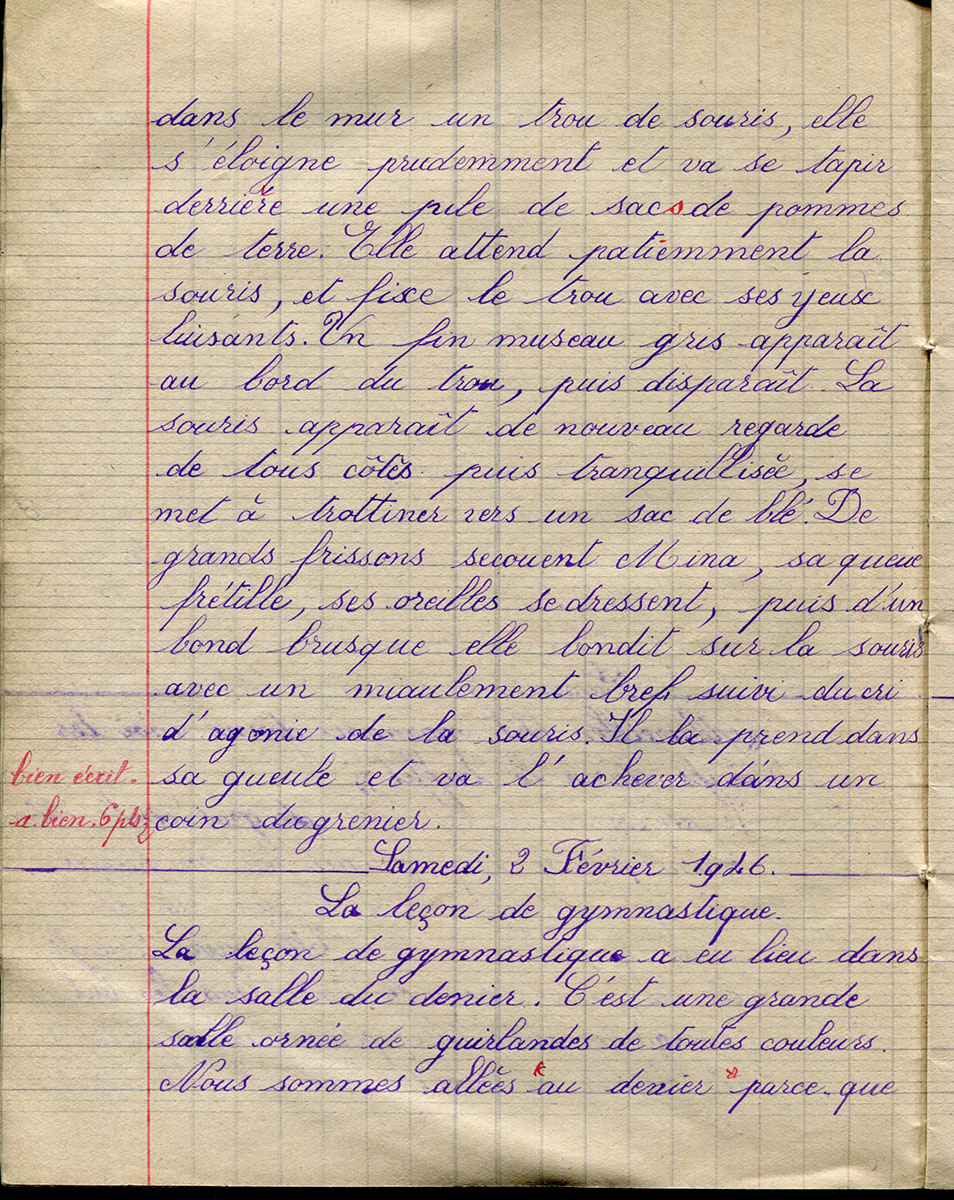 dans le mur un trou de souris, elle
s'éloigne prudemment et va se tapir
derrière une pile de sacs de pommes
de terre. Elle attend patiemment la
souris, et fixe le trou avec ses yeux
luisants. Un fin museau gris apparaît
au bord du trou, puis disparaît. La
souris apparaît de nouveau regarde
de tous côtés puis tranquillisée, se
met à trottiner vers un sac de blé. De
grands frissons secouent Mina, sa queue
frétille, ses oreilles se dressent, puis d'un
bond brusque elle bondit sur la souris
avec un miaulement bref suivi du cri
d'agonie de la souris. Il la prend dans
bien écrit.
sa gueule et va l'achever dans un
a. bien. 6 pts ½
coin du grenier.
Samedi, 2 Février 1946.
La leçon de gymnastique.
La leçon de gymnastique a eu lieu dans
la salle du denier. C'est une grande
salle ornée de guirlandes de toutes couleurs.
Nous sommes allées au denier parce-que